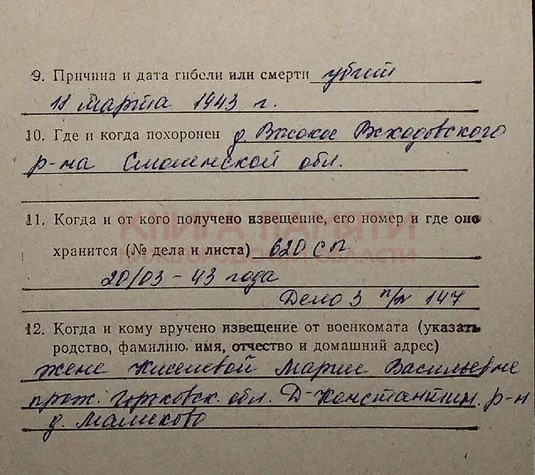 9. Причина и дата гибели или смерти убит
11 марта 1943 г.
10. Где и когда похоронен д. Высокое Всходовского
р-на Смоленской обл.
КНИГА ПАМЯТИ
11. Когда и от кого получено извещение, его номер и где оно
хранится (№ дела и листа) 620 сп
20/03 - 43 года
Дело 3 п/п 147
12. Когда и кому вручено извещение от военкомата (указать
родство, фамилию, имя, отчество и домашний адрес)
жене Киселевой Марии Васильевне
прож. Горьковск. обл. Д-Константин. р-н
д. Малиново